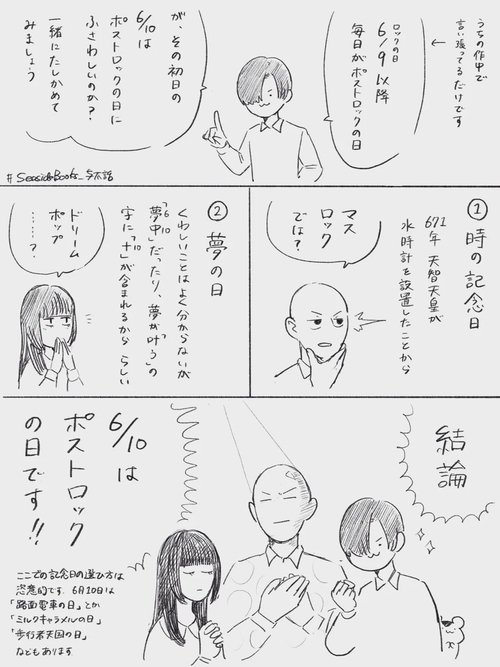 うちの作中で
言い張ってるだけです
ロックの日
6/9以降
毎日がポストロックの日
が、その初日の
6/10は
ポストロックの日に
ふさわしいのか?
一緒にたしかめて
みましょう
#SeasideBooks_与太話
①時の記念日
671年 天智天皇が
水時計を設置したことから
マス
ロック
では?
②夢の日
くわしいことはよく分からないが
「夢中」だったり、夢が叶うの
6 10
字に「十」が含まれるかららしい
10
ドリーム
ポップ
……?
結論
6/10は
ポストロック
の日です!!
ここでの記念日の選び方は
恣意的です。6月10日は
「路面電車の日」とか
「ミルクキャラメルの日」
「歩行者天国の日」
などもあります